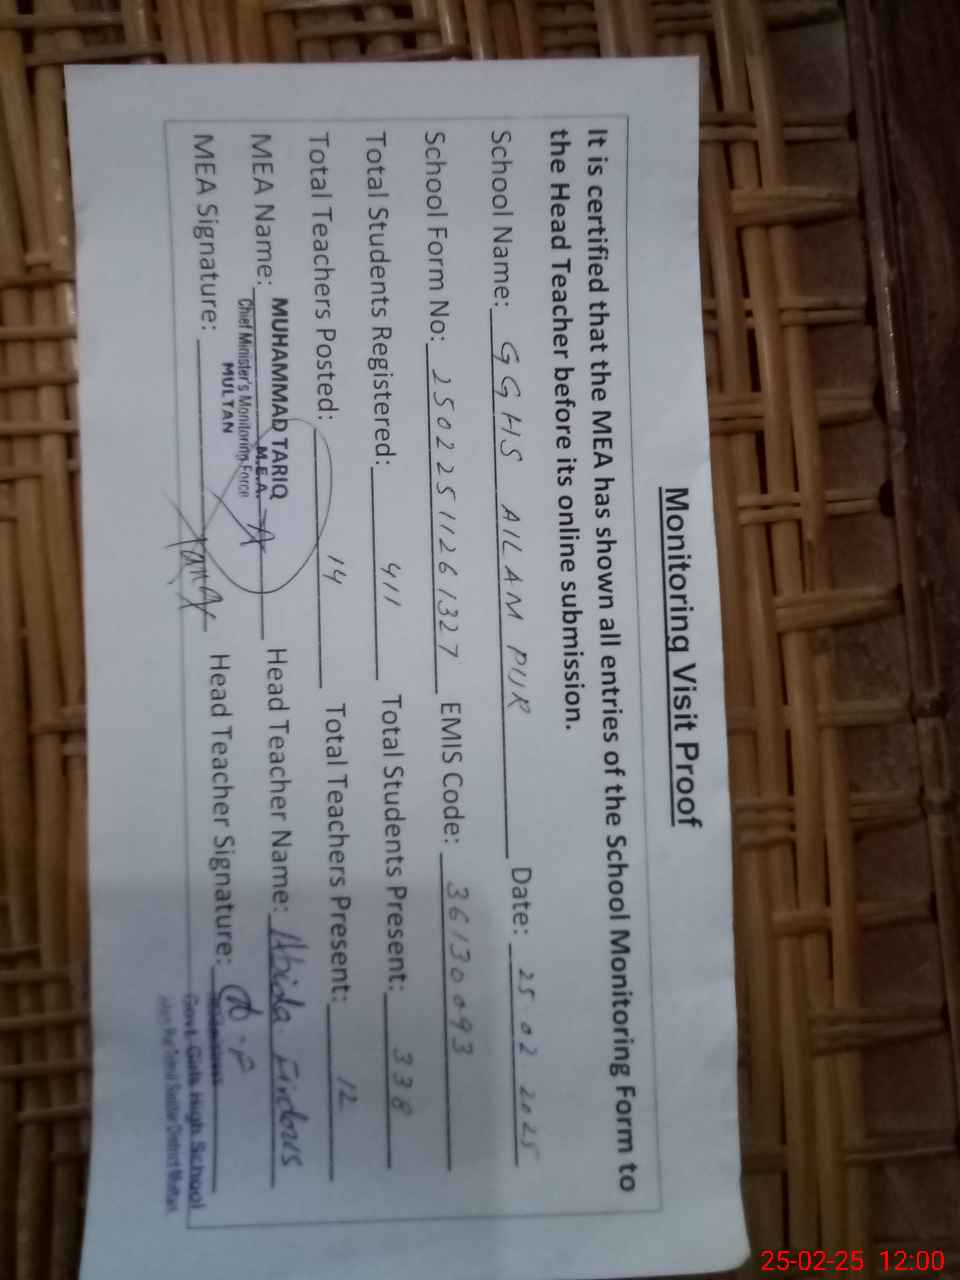 Monitoring Visit Proof
It is certified that the MEA has shown all entries of the School Monitoring Form to
the Head Teacher before its online submission.
School Name: GGHS AILAM PUR Date: 25.02.2025
School Form No: 25022511261327 EMIS Code: 36130093
Total Students Registered: 411 Total Students Present: 338
Total Teachers Posted: 14 Total Teachers Present: 12
MEA Name: MUHAMMAD TARIQ Head Teacher Name: Abida Firdous
M.E.A.
Chief Minister's Monitoring Force
MULTAN
MEA Signature: Tariq Head Teacher Signature: A.F
Govt. Girls High School
District Multan
25-02-25 12:00